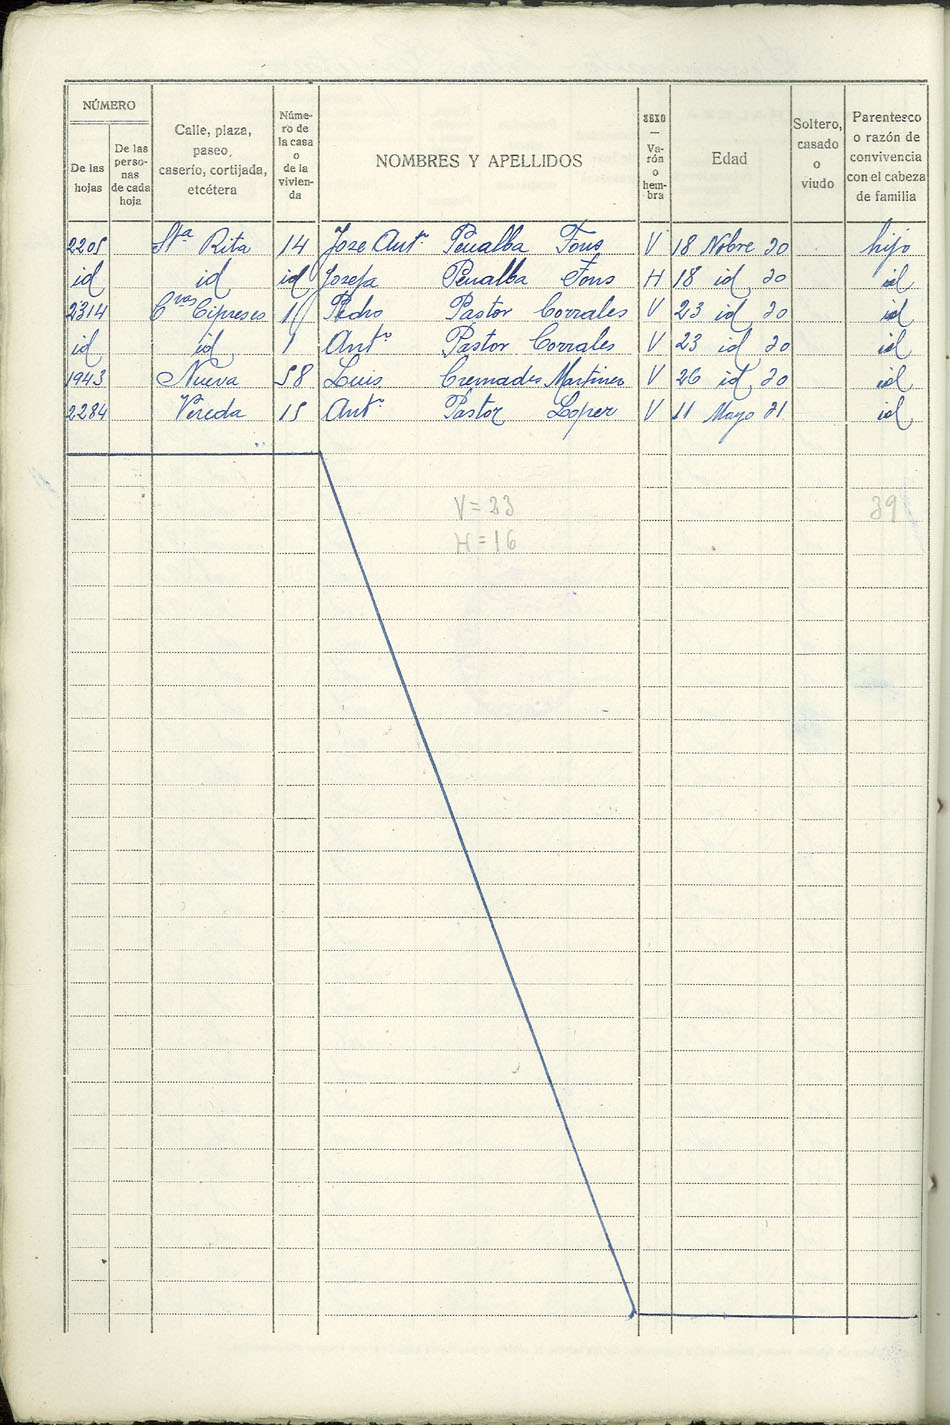 NÚMERO
De las hojas
De las perso-nas de cada hoja
Calle, plaza, paseo, caserío, cortijada, etcétera
Núme-ro de la casa o de la vivien-da
NOMBRES Y APELLIDOS
SEXO — Va-rón o hem-bra
Edad
Soltero, casado o viudo
Parentesco o razón de convivencia con el cabeza de familia
2205 Sta Rita 14 Jose Antº Penalba Fons V 18 Nobre 20 hijo
id id id Josefa Penalba Fons H 18 id 20 id
2314 Cipreses 1 Pedro Pastor Corrales V 23 id 20 id
id id 1 Antº Pastor Corrales V 23 id 20 id
1943 Nueva 58 Luis Cremades Martinez V 26 id 20 id
2284 Vereda 15 Antº Pastor Lopez V 11 Mayo 21 id
V = 23 39
H = 16